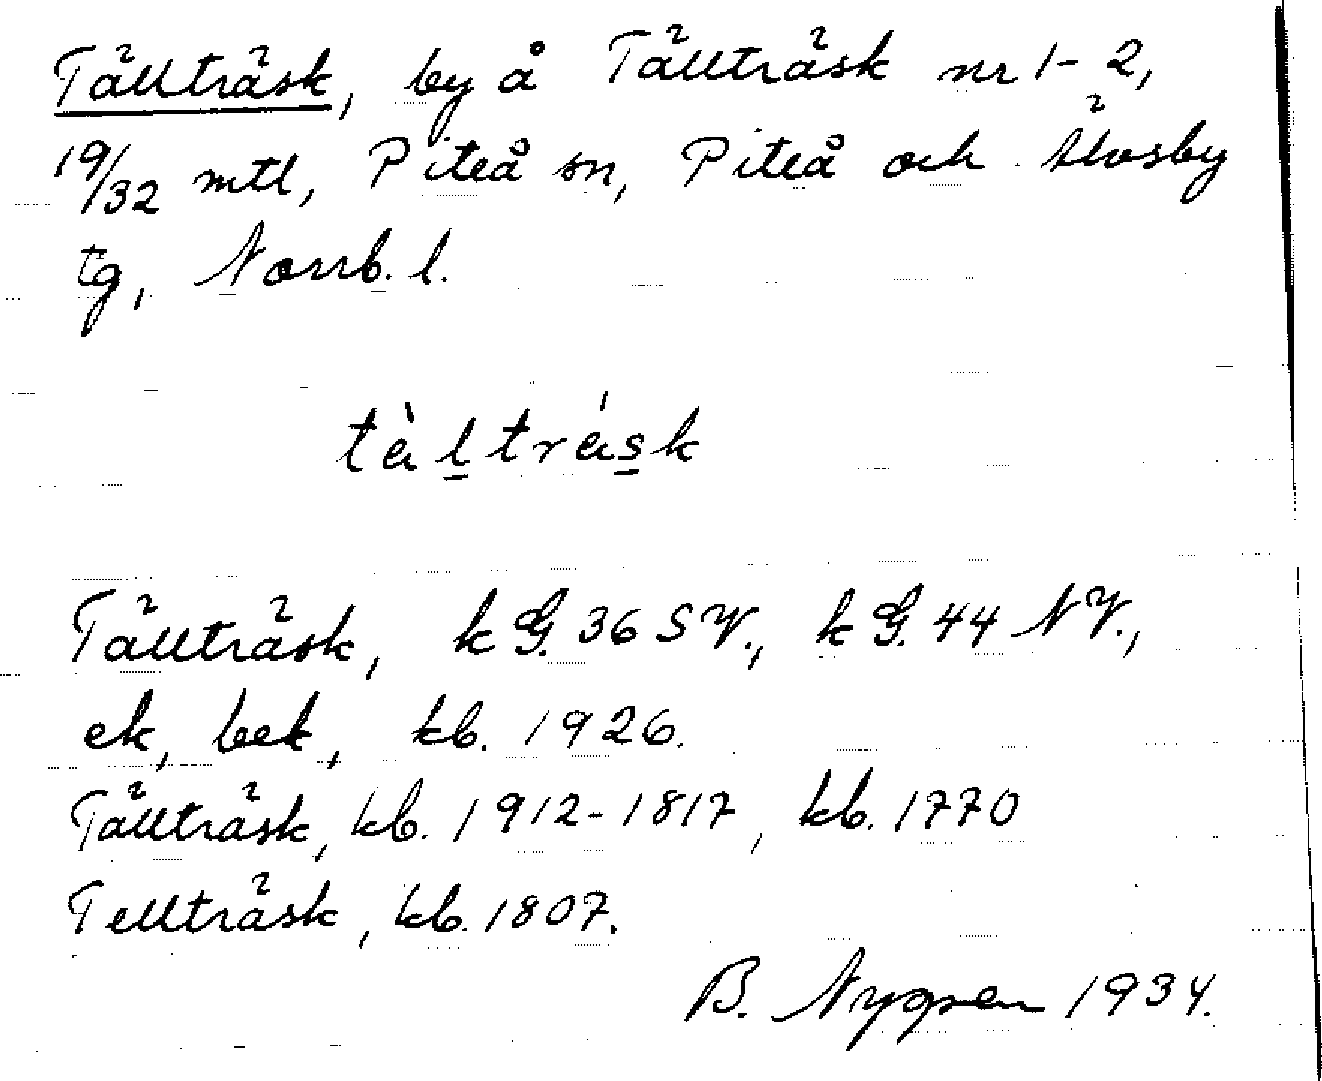 Tällträsk, by å Tällträsk nr 1-2,
19/32 mtl, Piteå sn, Piteå och Älvsby
tg, Norrb. l.
tὰl̲trás̲k
Tällträsk, kG. 36 SV., kG. 44 NV.,
ek, bek, kb. 1926.
Tällträsk, kb. 1912-1817, kb. 1770
Tellträsk, kb. 1807.
B. Nygren 1934.